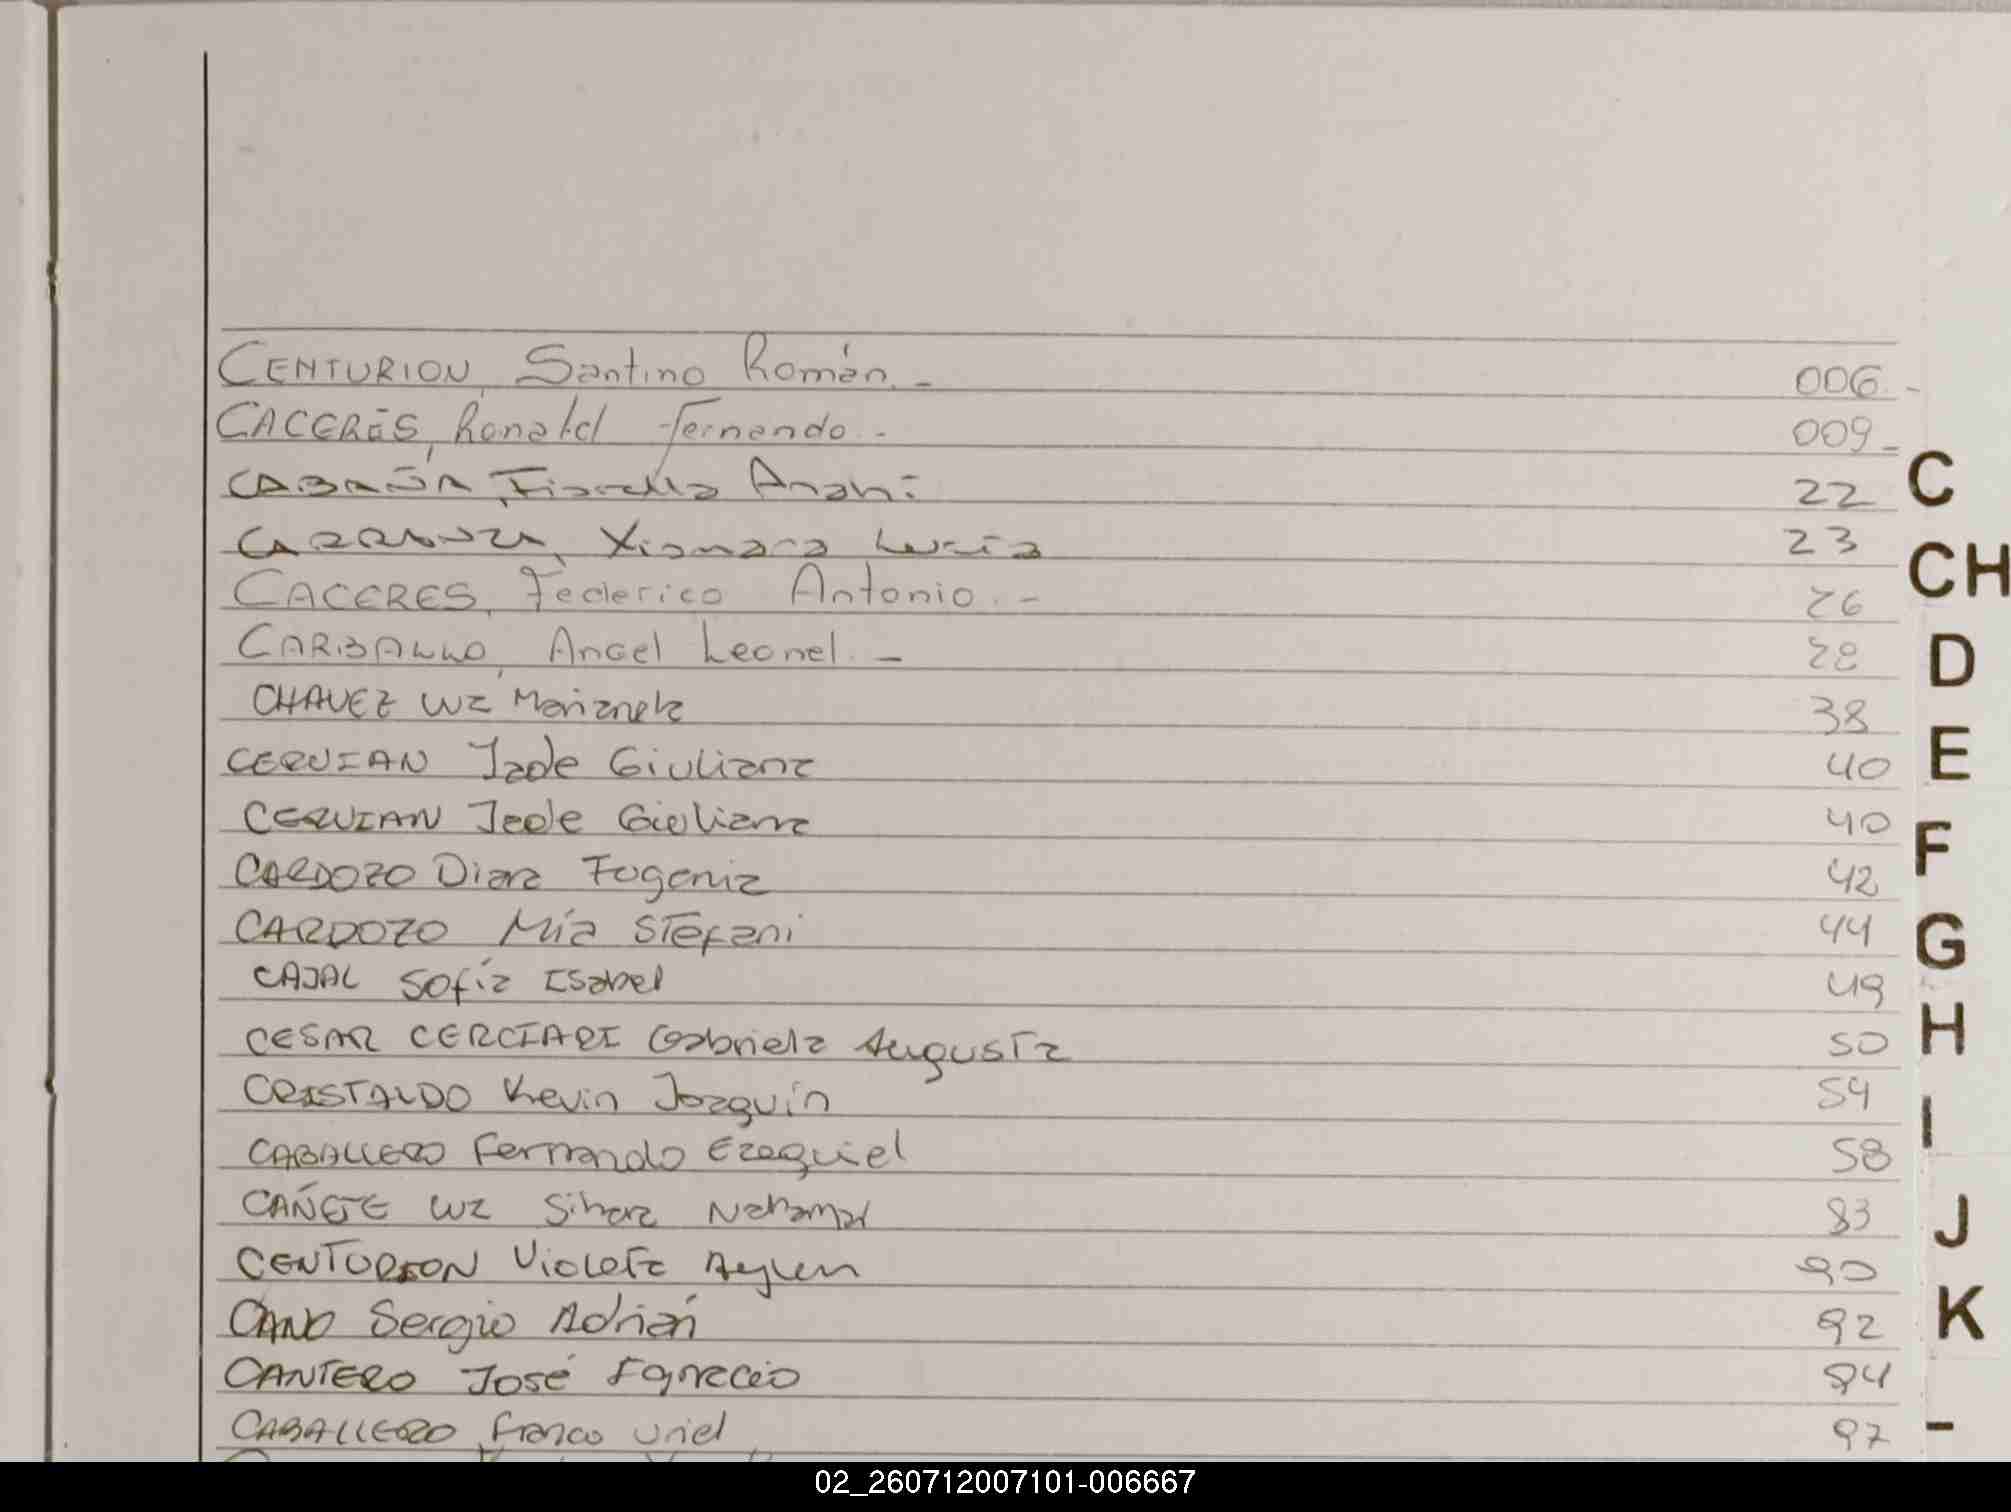 CENTURION, Santino Román.- 006.-
CACERES, Ronald Fernando.- 009.-
CABAÑA, Fiorella Anahi 22
CARRANZA, Xiomara Lucía 23
CACERES, Federico Antonio.- 26
CARBALLO, Angel Leonel.- 28
CHAVEZ Luz Marianela 38
CERVIAN Jade Giuliana 40
CERVIAN Jade Giuliana 40
CARDOZO Diana Eugenia 42
CARDOZO Mía Stefani 44
CAJAL Sofía Isabel 49
CESAR Gabriela Augusta 50
CRISTALDO Kevin Joaquín 54
CABALLERO Fernando Ezequiel 58
CAÑETE Luz 83
CENTURION Violeta Aylen 90
CANO Sergio Adrián 92
CANTERO José Ignacio 94
CABALLERO Franco Uriel 97
C
CH
D
E
F
G
H
I
J
K
02_260712007101-006667